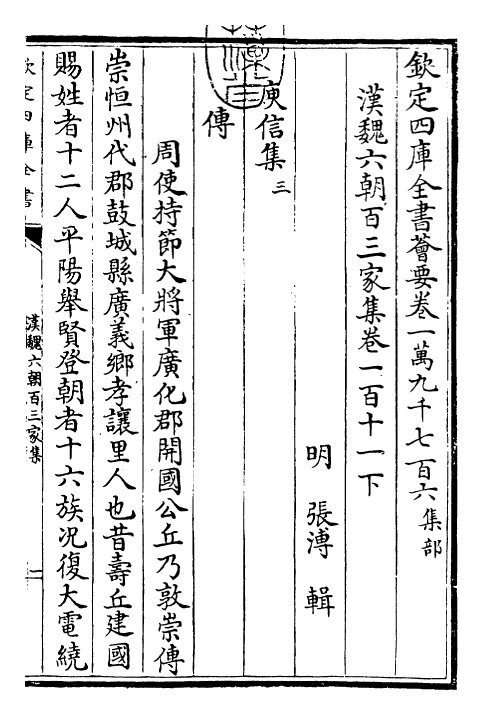 欽定四庫全書薈要卷一萬九千七百六集部
漢魏六朝百三家集卷一百十一下
明張溥輯
庾信集三
傳
周使持節大將軍廣化郡開國公丘乃敦崇傳
崇恒州代郡鼓城縣廣義鄉孝讓里人也昔壽丘建國
賜姓者十二人平陽舉賢登朝者十六族况復大電繞
欽定四庫全書
漢魏六朝百三家集